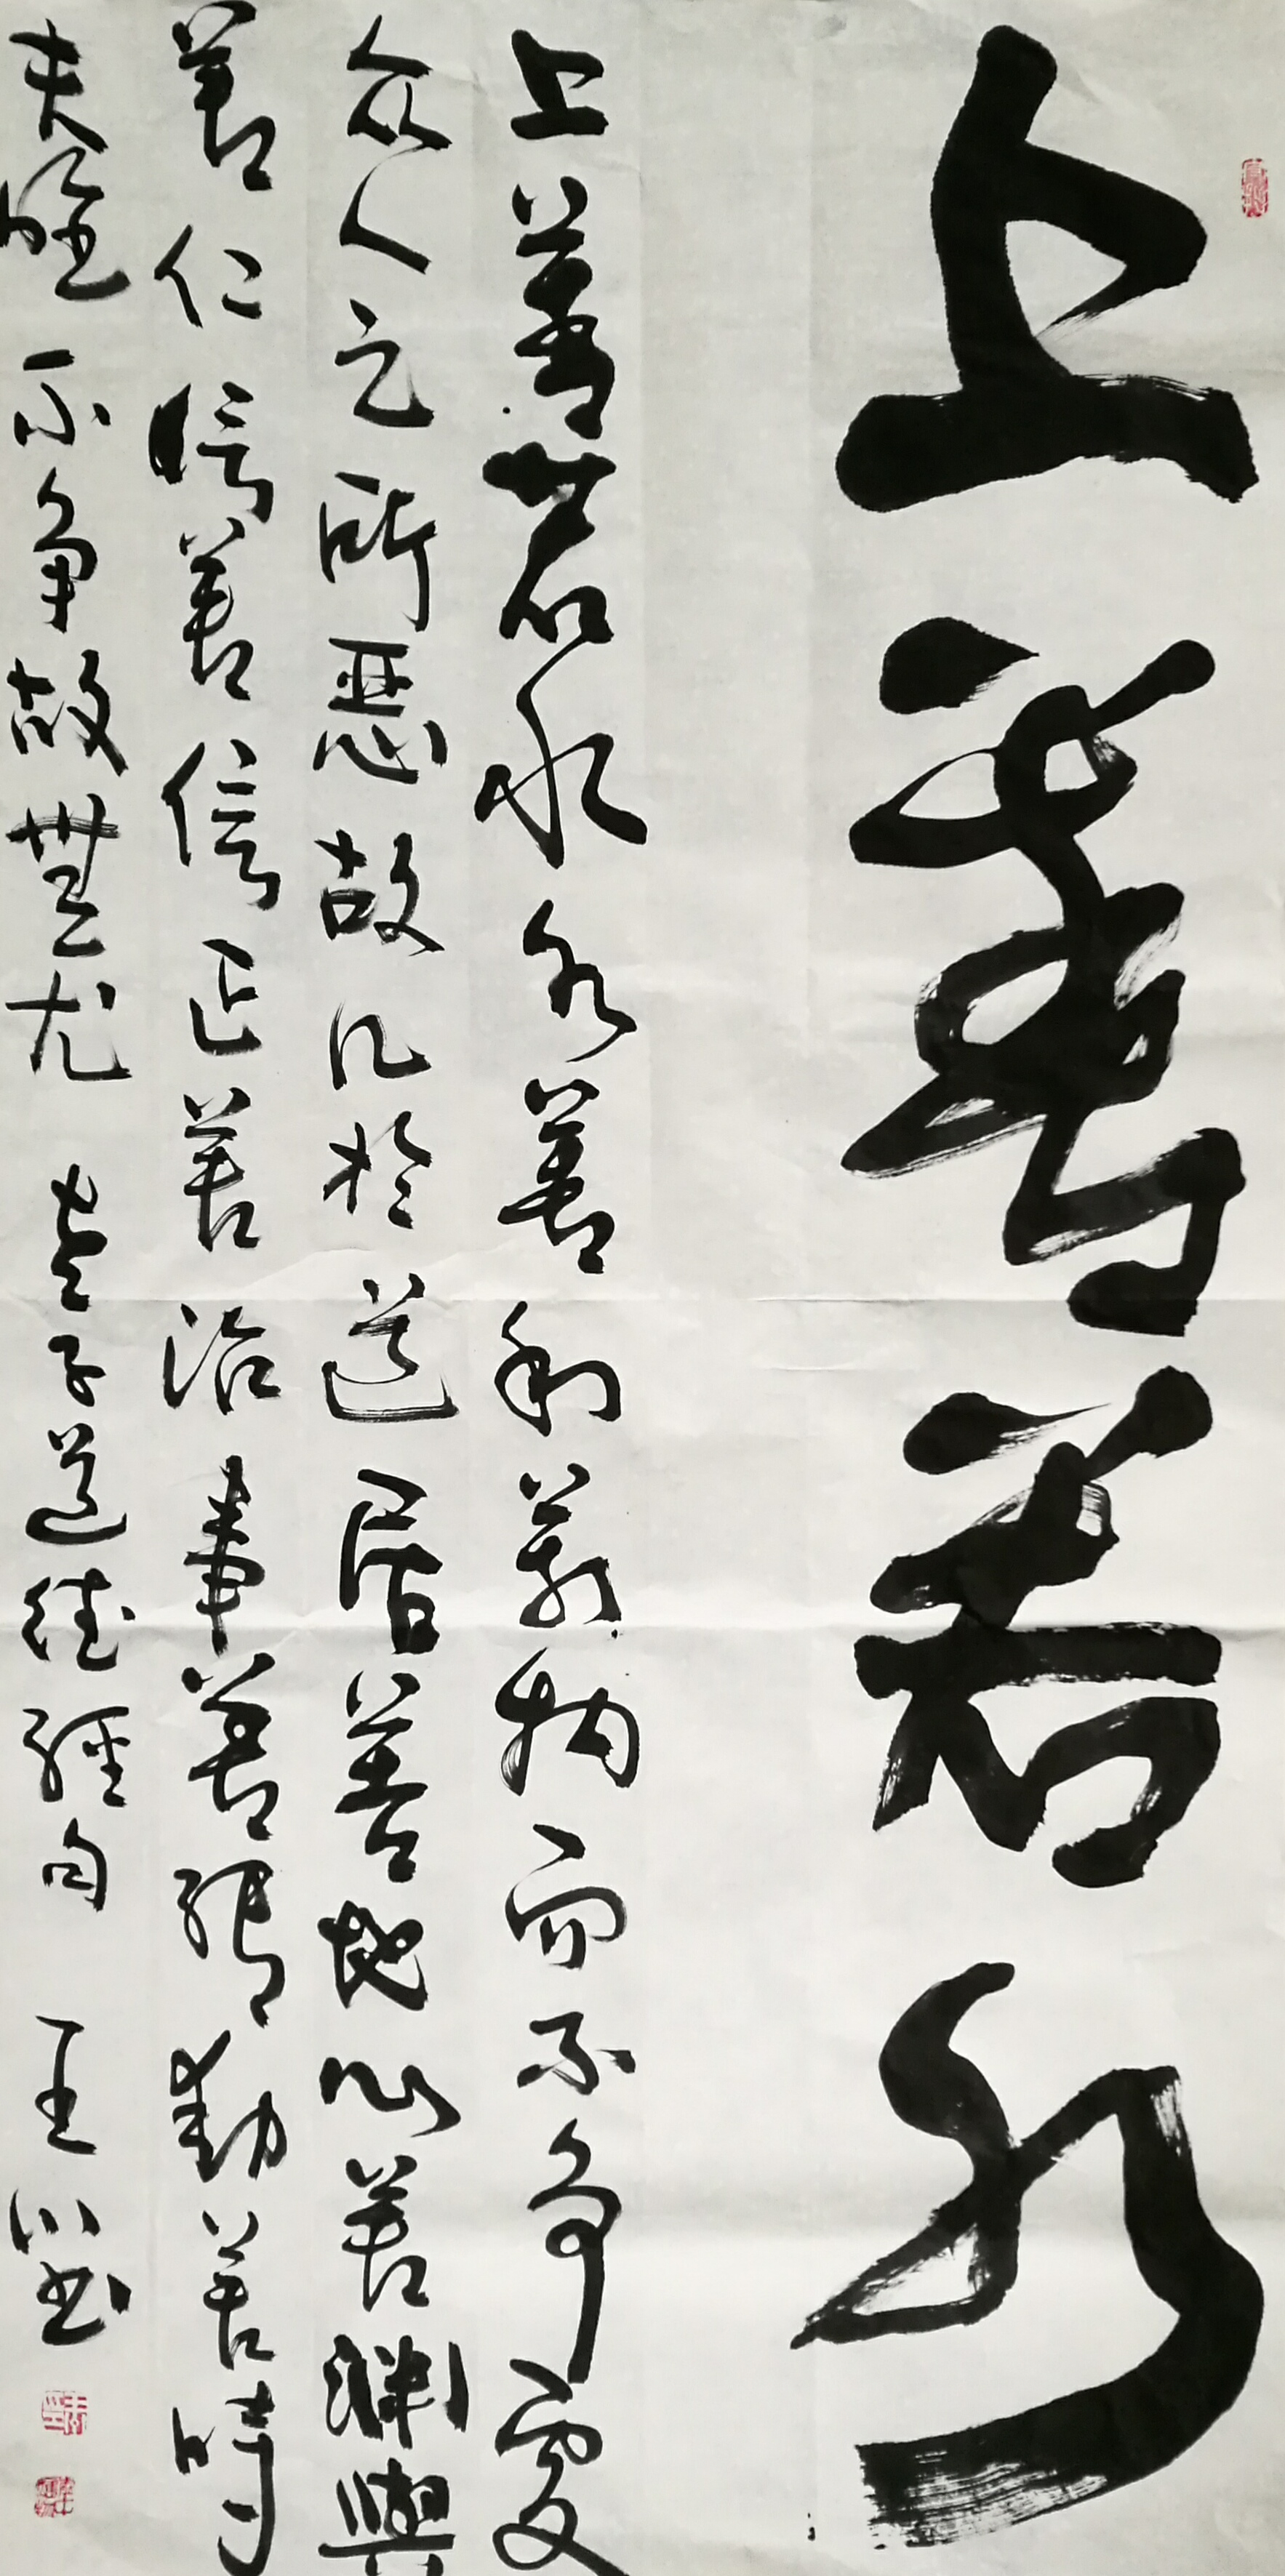 上善若水
上善若水水善利萬物而不争處
众人之所惡故几於道居善地心善淵與
善仁善信正善治事善能動善時
夫唯不争故無尤 老子道德經句 王